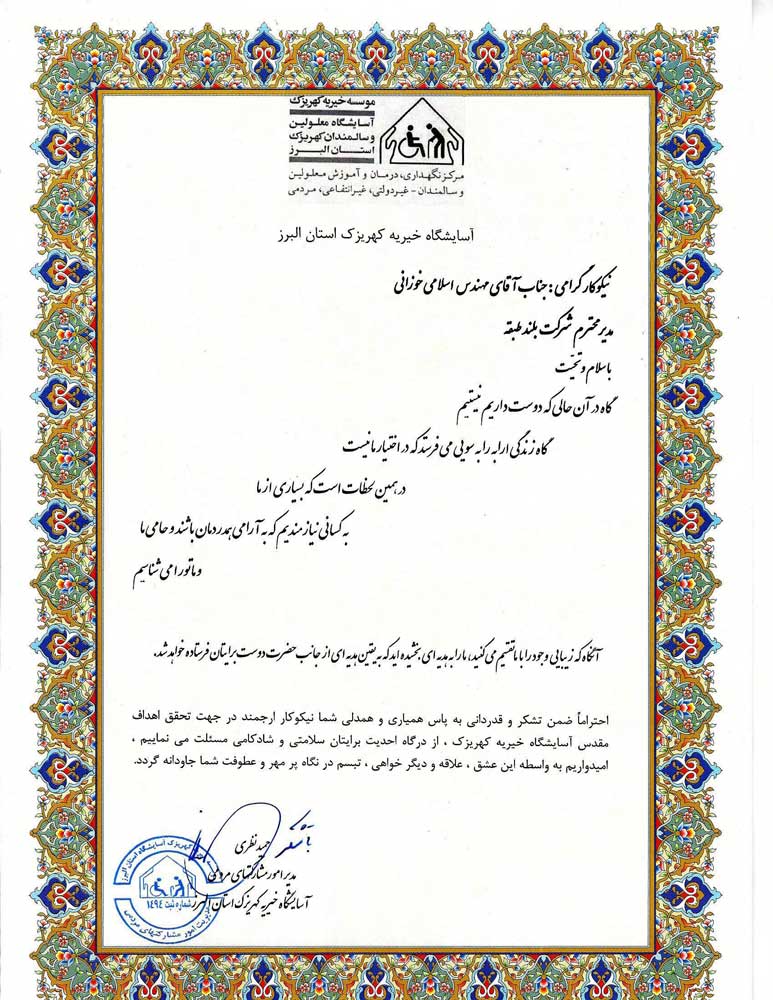 موسسه خیریه کهریزک
آسایشگاه معلولین
و سالمندان کهریزک
استان البرز
مرکز نگهداری، درمان و آموزش معلولین
و سالمندان - غیردولتی، غیرانتفاعی، مردمی
آسایشگاه خیریه کهریزک استان البرز
نیکوکار گرامی : جناب آقای مهندس اسلامی خوزانی
مدیر محترم شرکت بلند طبقه
با سلام و تحیّت
گاه در آن حالی که دوست داریم نیستیم
گاه زندگی ارابه را به سویی می فرستد که در اختیار ما نیست
در همین لحظات است که بسیاری از ما
به کسانی نیازمندیم که به آرامی همدردمان باشند و حامی ما
و ما تو را می شناسیم
آنگاه که زیبایی وجود را با ما تقسیم می کنید، ما را به هدیه ای بخشیده اید که به یقین هدیه ای از جانب حضرت دوست برایتان فرستاده خواهد شد.
احتراماً ضمن تشکر و قدردانی به پاس همیاری و همدلی شما نیکوکار ارجمند در جهت تحقق اهداف
مقدس آسایشگاه خیریه کهریزک ، از درگاه احدیت برایتان سلامتی و شادکامی مسئلت می نماییم ،
امیدواریم به واسطه این عشق ، علاقه و دیگر خواهی ، تبسم در نگاه پر مهر و عطوفت شما جاودانه گردد.
با تشکر
حمید نظری
مدیر امور مشارکتهای مردمی
آسایشگاه خیریه کهریزک استان البرز
کهریزک آسایشگاه استان البرز
شماره ثبت ۱۴۹۴
مدیریت امور مشارکتهای مردمی